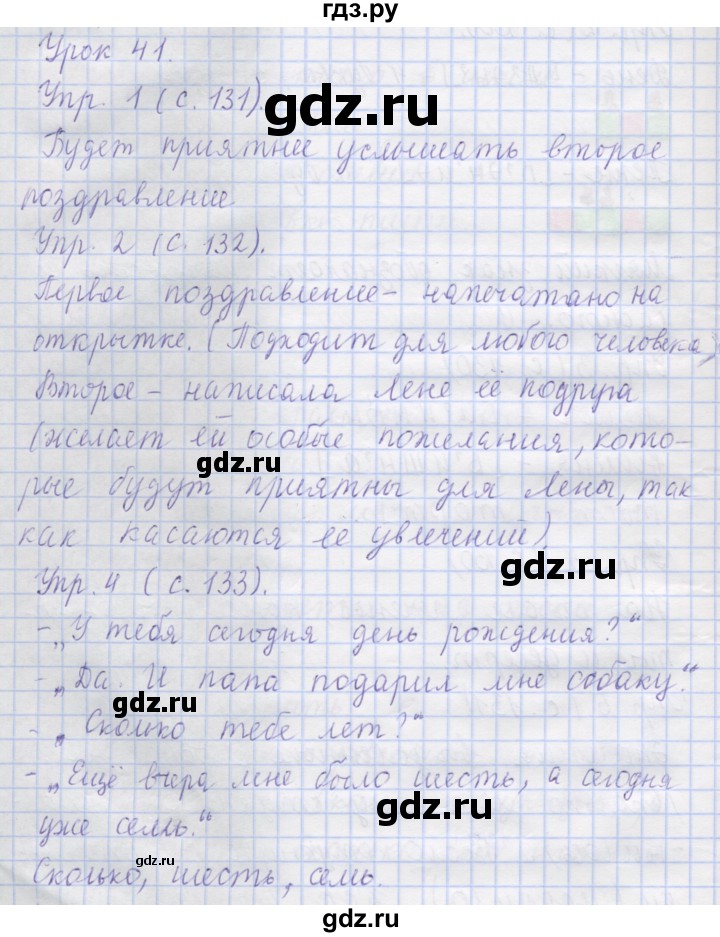 гдз.ру
Урок 41.
Упр. 1 (с. 131).
gdz.ru
Будет приятнее услышать второе
поздравление
Упр. 2 (с. 132).
Первое поздравление - напечатано на
открытке. (Подходит для любого человека)
Второе - написала Лене её подруга
(желает ей особые пожелания, кото-
gdz.ru
рые будут приятны для Лены, так
как касаются её увлечений)
gdz.ru
Упр. 4 (с. 133).
- „У тебя сегодня день рождения?“
- „Да. И папа подарил мне собаку.“
gdz.ru
- „Сколько тебе лет?“
- „Ещё вчера мне было шесть, а сегодня
gdz.ru
уже семь.“
gdz.ru
Сколько, шесть, семь.
gdz.ru